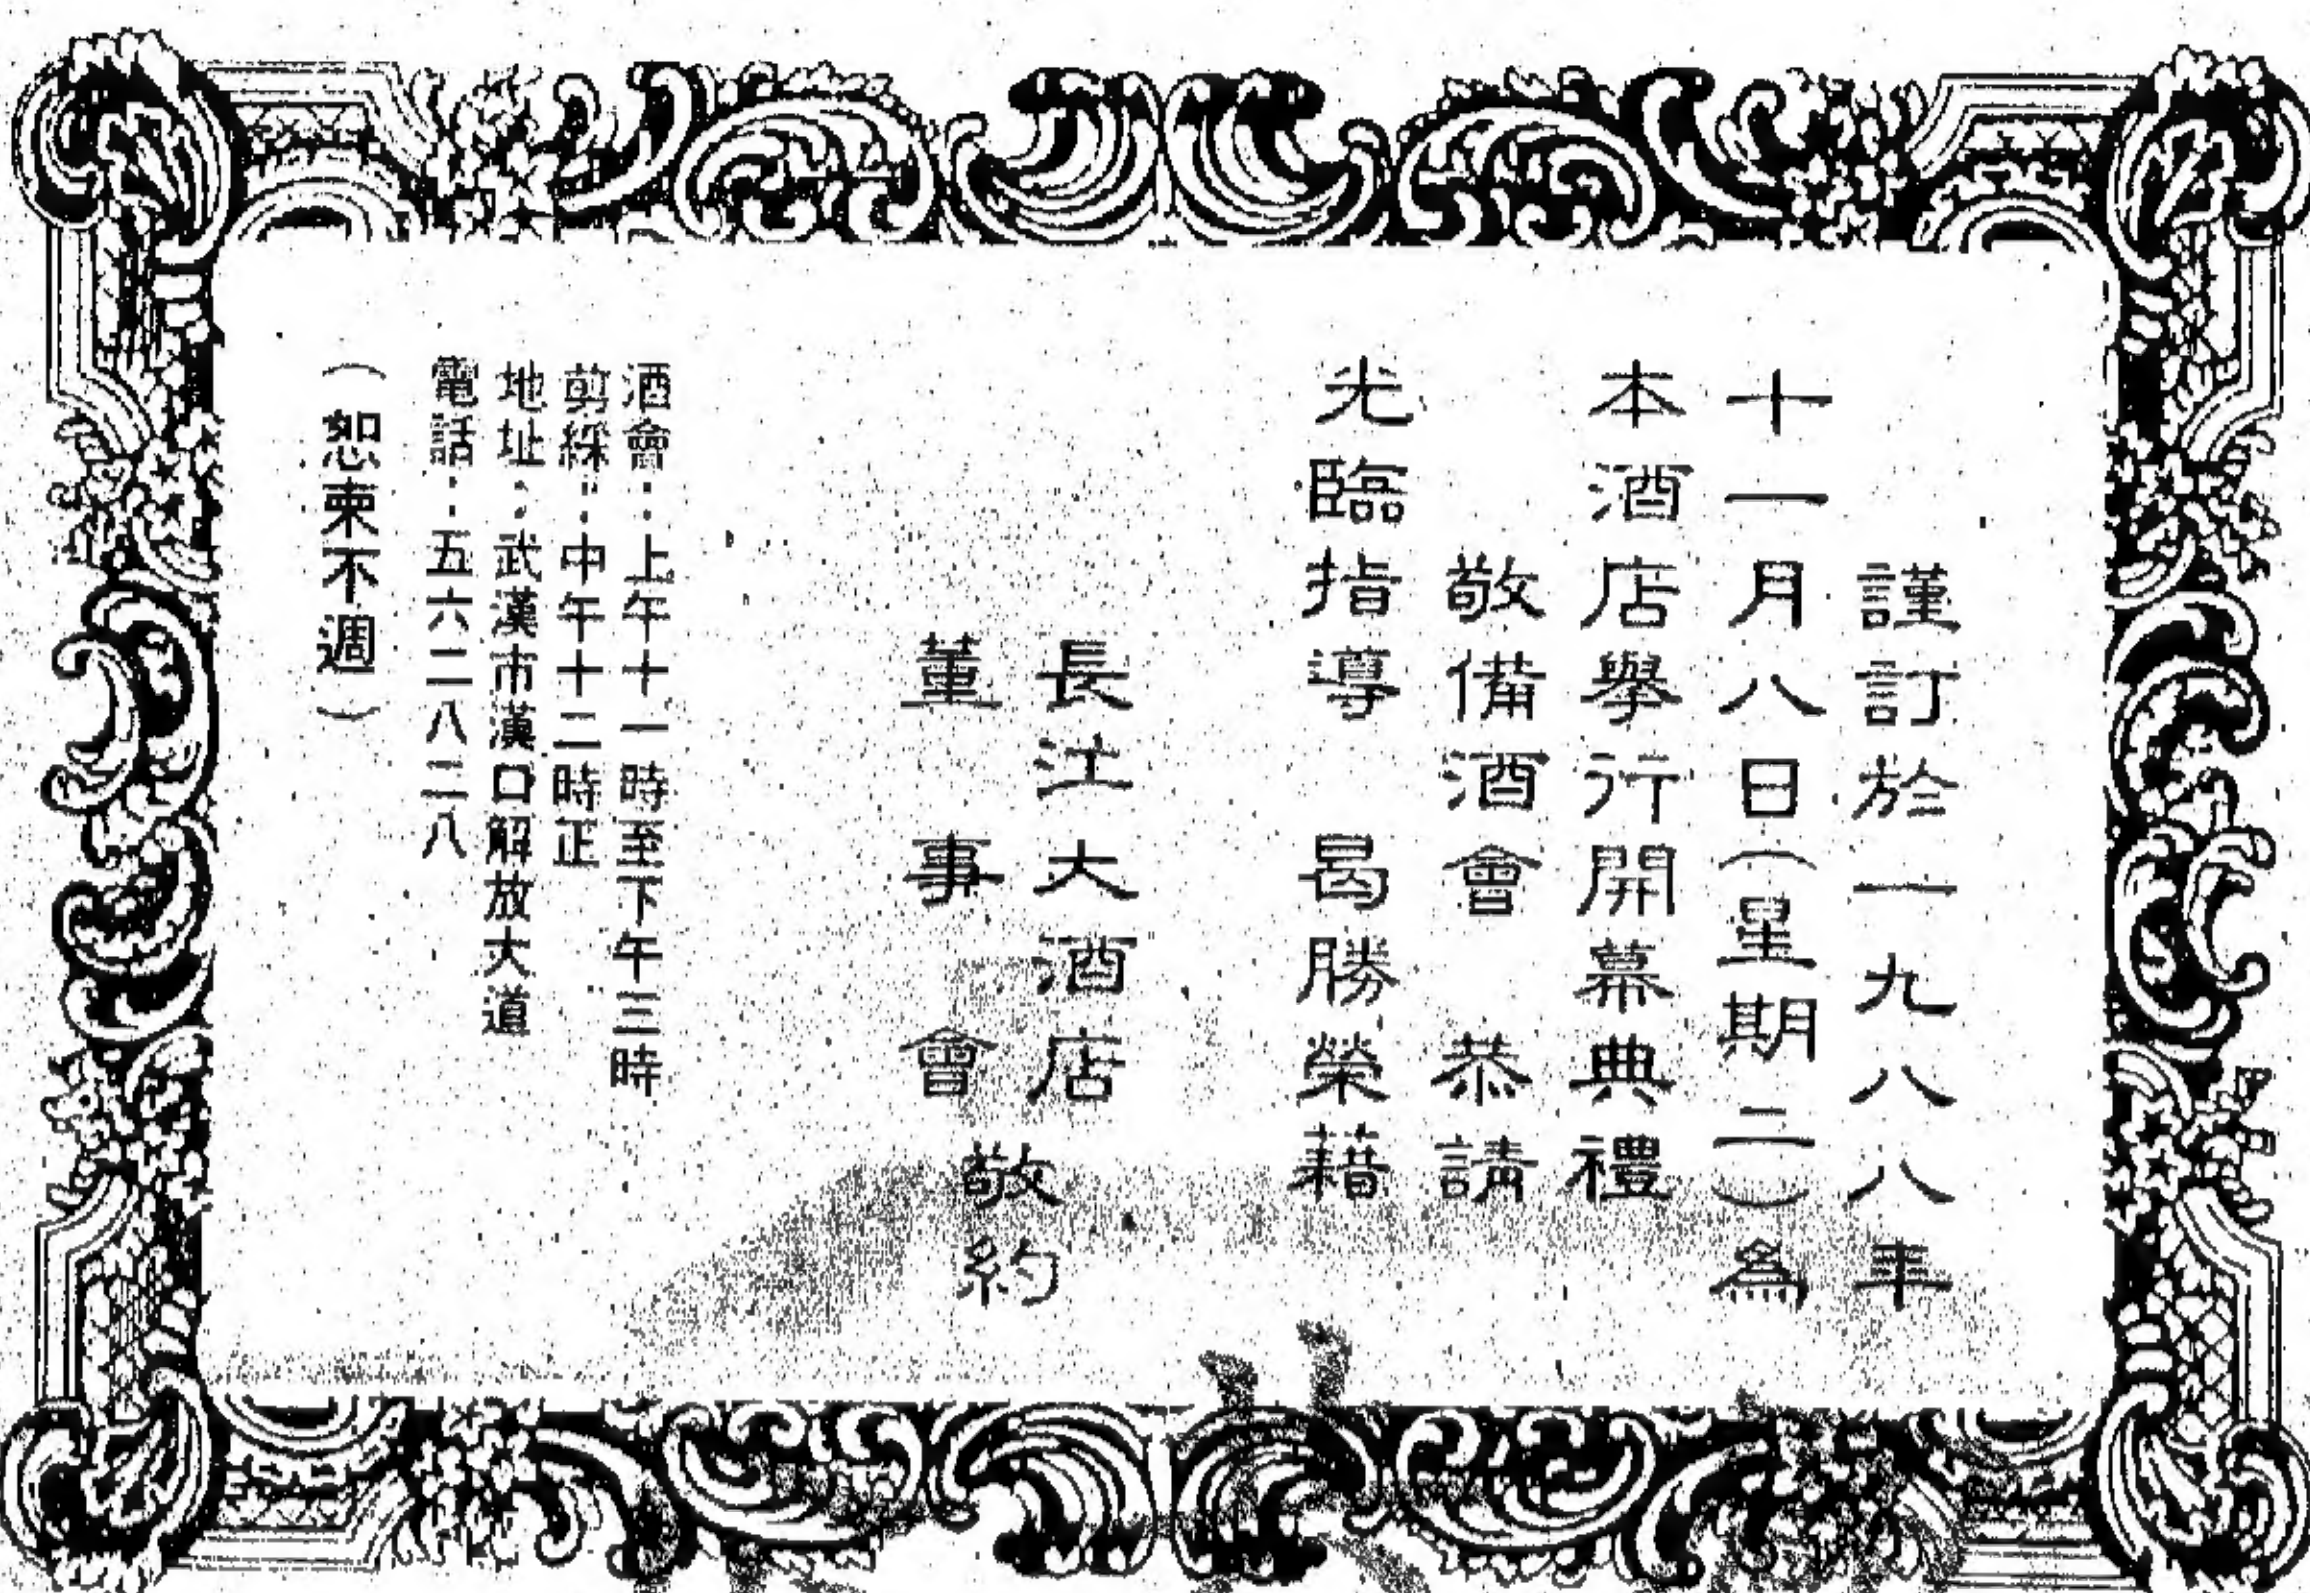 謹訂於一九八八年
十一月八日(星期二)為
本酒店舉行開幕典禮
敬備酒會 恭請
光臨指導 曷勝榮藉
長江大酒店
董事會
敬約
酒會：上午十一時至下午三時
剪綵：中午十二時正
地址：武漢市漢口解放大道
電話：五六二八三八
(恕柬不週)